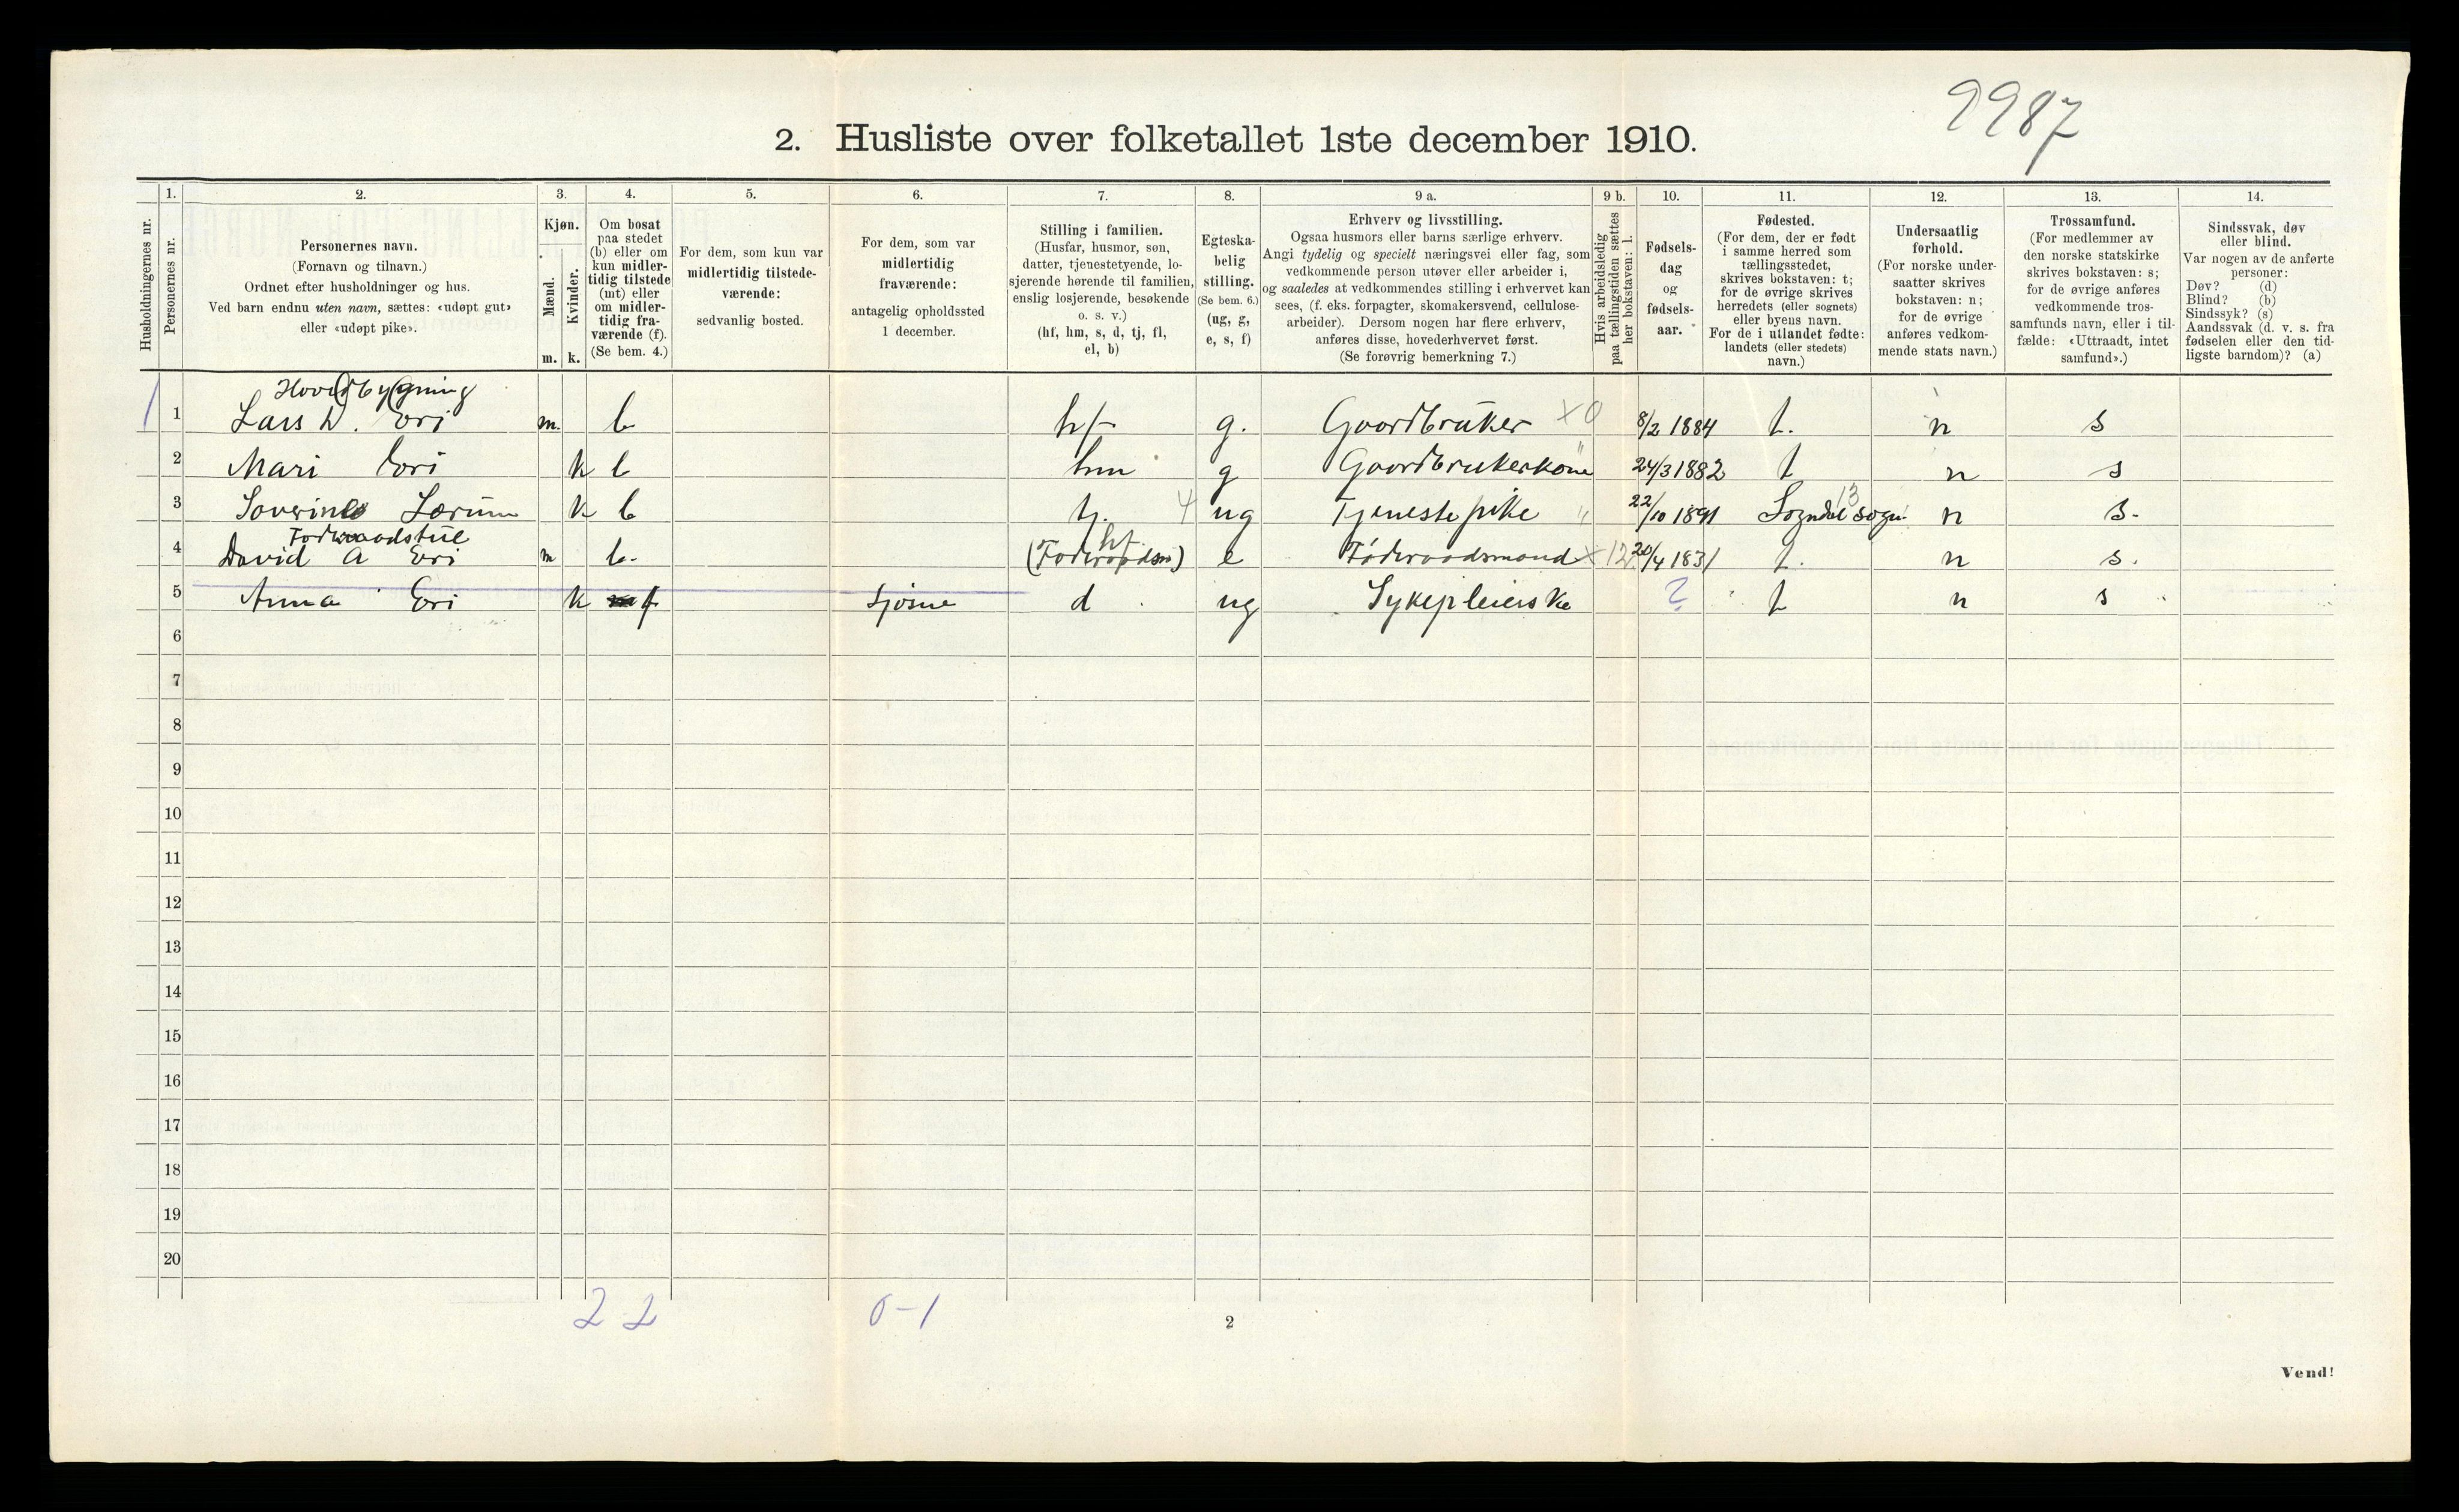 9987
2. Husliste over folketallet 1ste december 1910.
Husholdningernes nr.
1. Personernes nr.
2. Personernes navn. (Fornavn og tilnavn.) Ordnet efter husholdninger og hus. Ved barn endnu uten navn, sættes: «udøpt gut» eller «udøpt pike».
3. Kjøn. Mænd. m. Kvinder. k.
4. Om bosat paa stedet (b) eller om kun midlertidig tilstede (mt) eller om midlertidig fraværende (f). (Se bem. 4.)
5. For dem, som kun var midlertidig tilstedeværende: sedvanlig bosted.
6. For dem, som var midlertidig fraværende: antagelig opholdssted 1 december.
7. Stilling i familien. (Husfar, husmor, søn, datter, tjenestetyende, losjerende hørende til familien, enslig losjerende, besøkende o. s. v.) (hf, hm, s, d, tj, fl, el, b)
8. Egteskabelig stilling. (Se bem. 6.) (ug, g, e, s, f)
9 a. Erhverv og livsstilling. Ogsaa husmors eller barns særlige erhverv. Angi tydelig og specielt næringsvei eller fag, som vedkommende person utøver eller arbeider i, og saaledes at vedkommendes stilling i erhvervet kan sees, (f. eks. forpagter, skomakersvend, cellulosearbeider). Dersom nogen har flere erhverv, anføres disse, hovederhvervet først. (Se forøvrig bemerkning 7.)
9 b. Hvis arbeidsledig paa tællingstiden sættes her bokstaven: l.
10. Fødselsdag og fødselsaar.
11. Fødested. (For dem, der er født i samme herred som tællingsstedet, skrives bokstaven: t; for de øvrige skrives herredets (eller sognets) eller byens navn. For de i utlandet fødte: landets (eller stedets) navn.)
12. Undersaatlig forhold. (For norske undersaatter skrives bokstaven: n; for de øvrige anføres vedkommende stats navn.)
13. Trossamfund. (For medlemmer av den norske statskirke skrives bokstaven: s; for de øvrige anføres vedkommende trossamfunds navn, eller i tilfælde: «Uttraadt, intet samfund».)
14. Sindssvak, døv eller blind. Var nogen av de anførte personer: Døv? (d) Blind? (b) Sindssyk? (s) Aandssvak (d. v. s. fra fødselen eller den tidligste barndom)? (a)
Hovedbygning
1 1 Lars D. Eri m. b hf g. Gaardbruker X0 8/2 1884 t. n s
2 Mari Eri k b hm g Gaardbrukerkone " 24/3 1882 t n s
3 Søverine Lærum k b tj. 4 ug Tjenestepike " 22/10 1891 Sogndal sogn 13 n s.
Foderaadstue
4 David A Eri m b. hf (Foderaadsm) e Føderaadsmand X 12 20/4 1831 t. n s.
5 Anna Eri k f Ljøsne d ug Sykepleierske ? t n s
6
7
8
9
10
11
12
13
14
15
16
17
18
19
20
2 2 0-1
2
Vend!